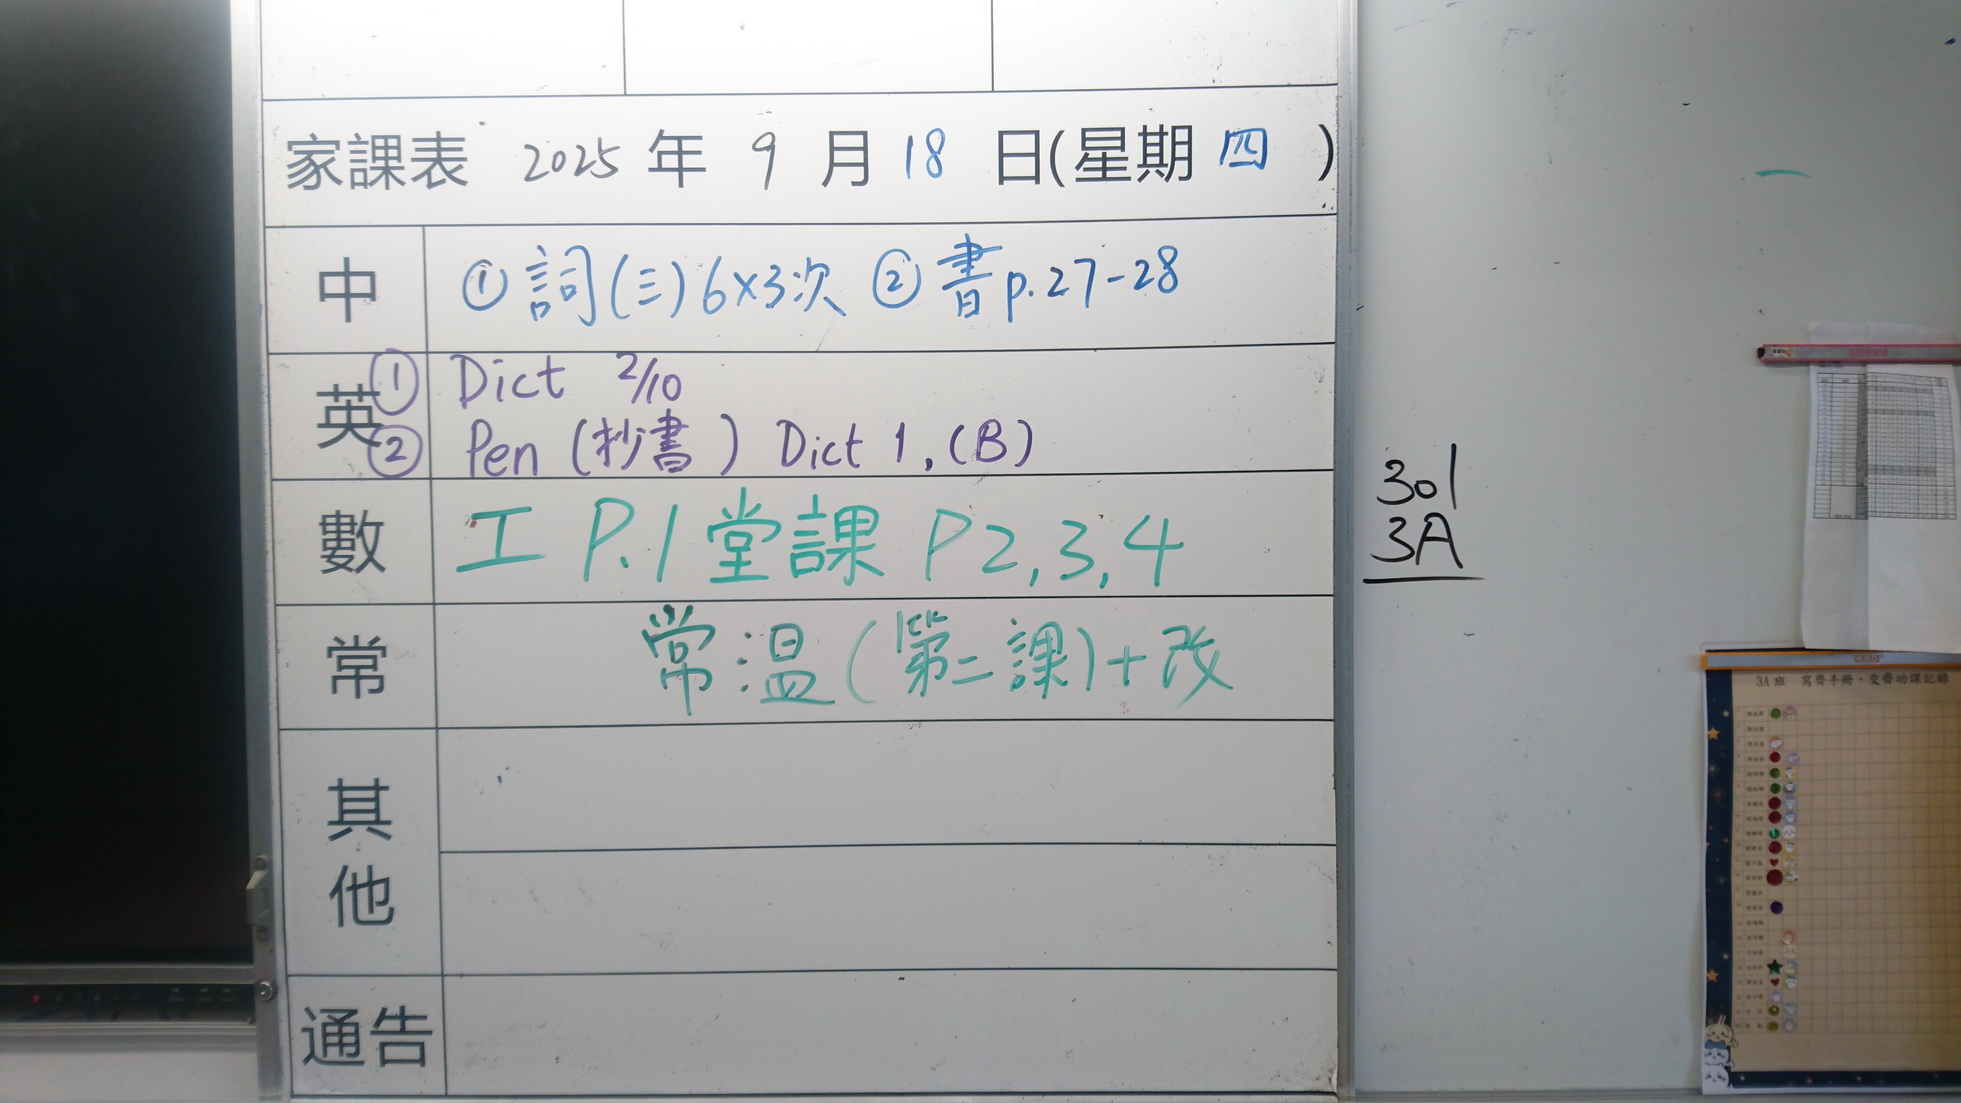 家課表 2025 年 9 月 18 日(星期 四 )
中 ① 詞(三)6×3次 ② 書p.27-28
英 ① Dict 2/10
② Pen (抄書) Dict 1, (B)
數 工 P.1堂課 P2,3,4
常 常溫(第二課)+改
其他
通告
301
3A
3A班 寫齊手冊、交齊功課記錄